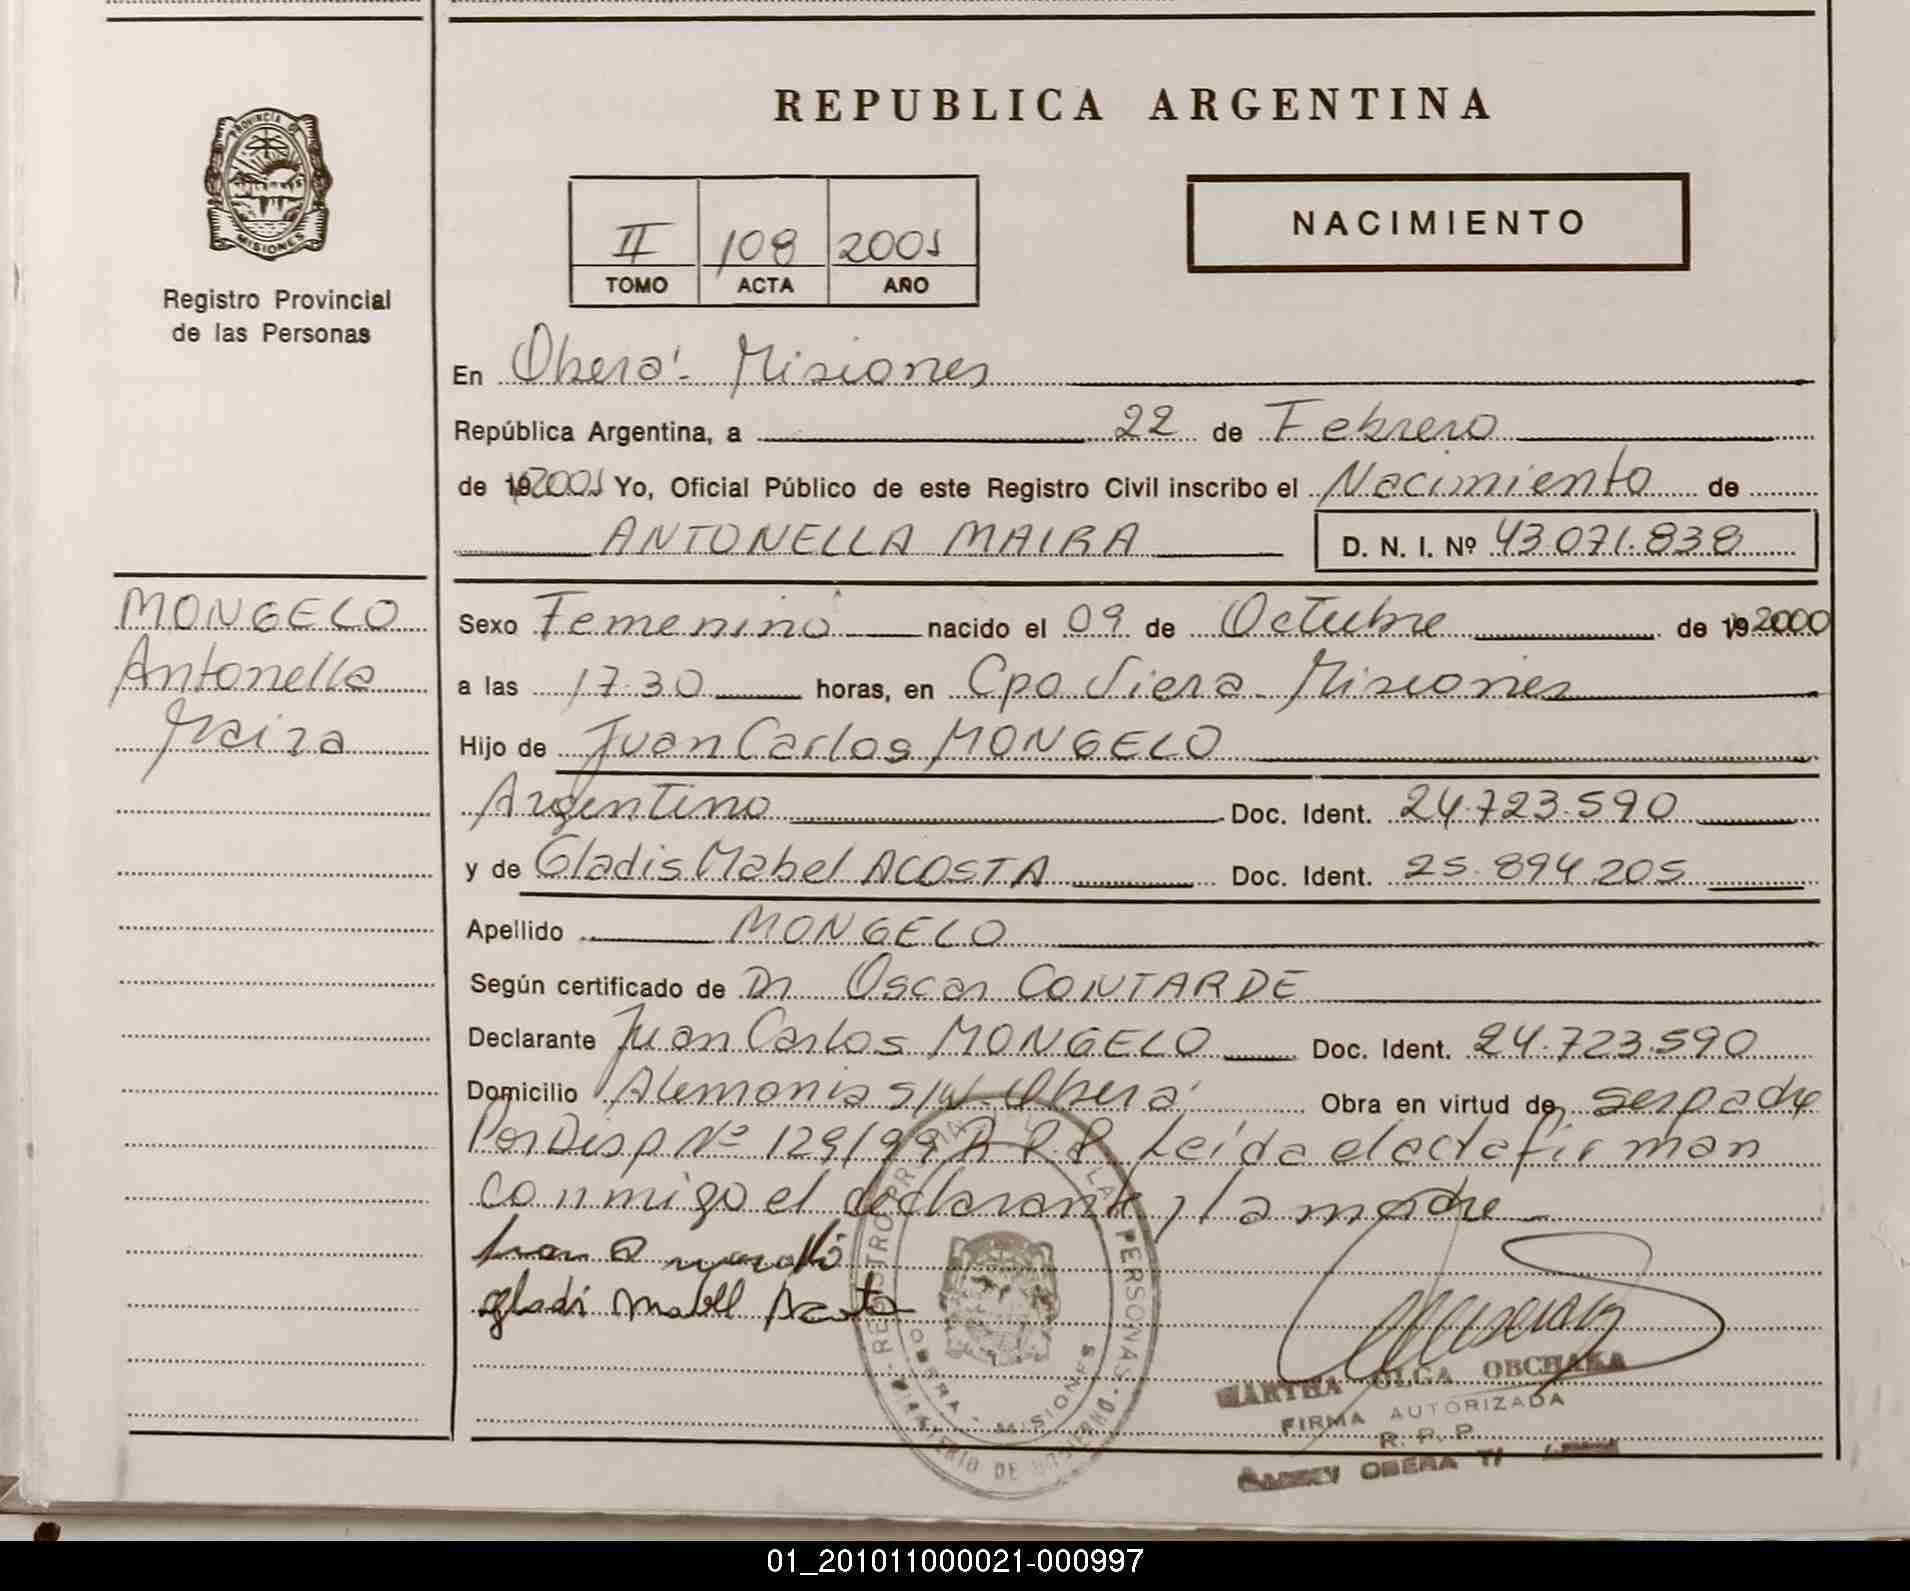 REPUBLICA ARGENTINA
PROVINCIA DE
MISIONES
Registro Provincial
de las Personas
NACIMIENTO
II 108 2001
TOMO ACTA AÑO
En Oberá - Misiones
República Argentina, a 22 de Febrero
de 19 2001 Yo, Oficial Público de este Registro Civil inscribo el Nacimiento de
ANTONELLA MAIRA D. N. I. Nº 43.071.838
MONGELO
Antonella
Maira
Sexo Femenino nacido el 09 de Octubre de 19 2000
a las 17.30 horas, en Cpo Viera - Misiones
Hijo de Juan Carlos MONGELO
Argentino Doc. Ident. 24.723.590
y de Gladis Mabel ACOSTA Doc. Ident. 25.894.205
Apellido MONGELO
Según certificado de Dr Oscar CONTARDE
Declarante Juan Carlos MONGELO Doc. Ident. 24.723.590
Domicilio Alemania s/N - Oberá Obra en virtud de ser padre
Por Disp Nº 129/99 D.R.P. Leída el acta firman
conmigo el declarante y la madre
gladi mabel Acosta
REGISTRO PROVINCIAL DE LAS PERSONAS
OBERA - MISIONES
MINISTERIO DE GOBIERNO
MARTHA OLGA OBCHAKA
FIRMA AUTORIZADA
R. P. P.
OBERA
01_201011000021-000997